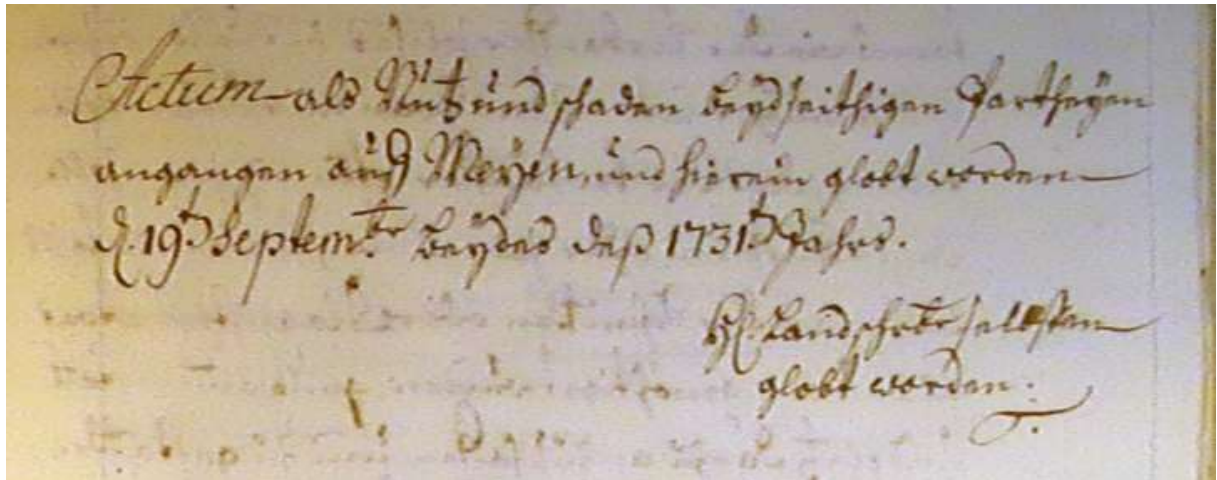 Actum als Nutz und schaden beydseithigen Partheyen
angangen auff Meyen, und hierein globt worden
d. 19t. Septembr. beydes deß 1731t. Jahrs.
Hl. Landschrbr selbsten
globt worden.